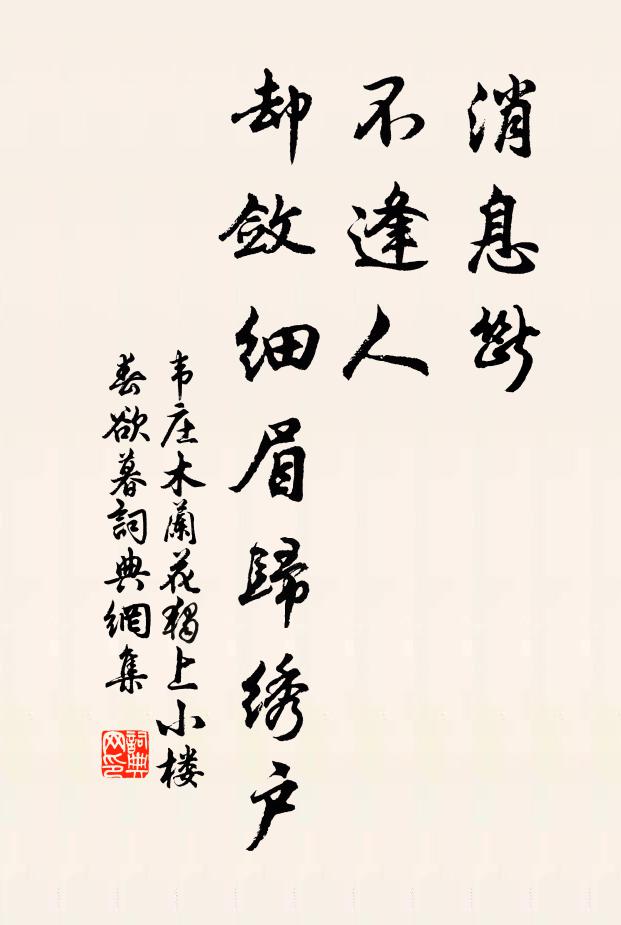 消息断
不逢人
却敛细眉歸绣户
韦庄木蘭花獨上小楼
春欲暮詞典網集
詞典
网印